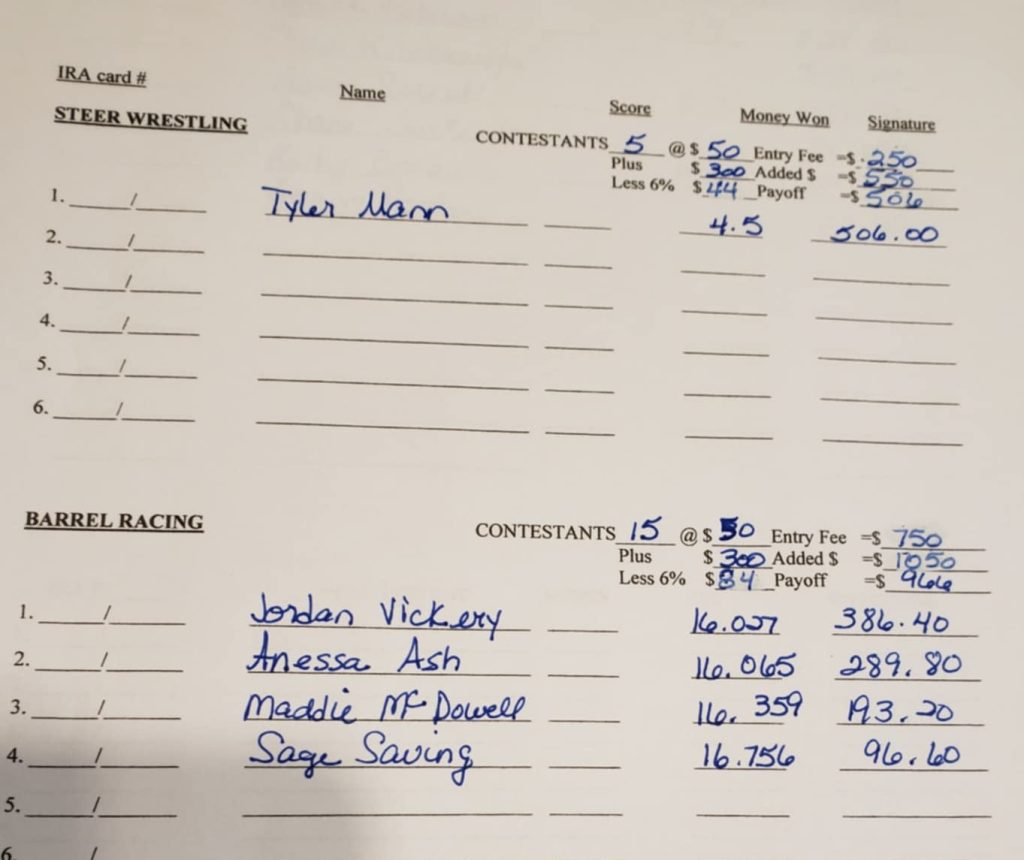 IRA card # Name Score Money Won Signature
STEER WRESTLING
CONTESTANTS 5 @ $ 50 Entry Fee =$ 250
Plus $ 300 Added $ =$ 550
Less 6% $ 44 Payoff =$ 506
1. ____/____ Tyler Mann 4.5 506.00
2. ____/____
3. ____/____
4. ____/____
5. ____/____
6. ____/____
BARREL RACING
CONTESTANTS 15 @ $ 50 Entry Fee =$ 750
Plus $ 300 Added $ =$ 1050
Less 6% $ 84 Payoff =$ 966
1. ____/____ Jordan Vickery 16.027 386.40
2. ____/____ Anessa Ash 16.065 289.80
3. ____/____ Maddie McDowell 16.359 193.20
4. ____/____ Sage Saving 16.756 96.60
5. ____/____
6. /